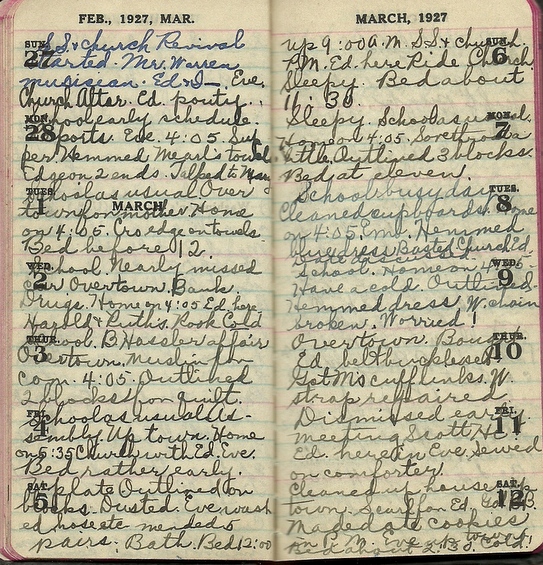 FEB., 1927, MAR.
SUN. 27 S.S. & church Revival
started. Mr. Warren
musician. Ed & I Eve.
Church After. Ed. pouty.
MON. 28 School early schedule.
Reports. Eve. 4:05. Sup
per Hemmed Mearl's towel.
Edge on 2 ends. Talked to
TUES. 1 MARCH School as usual Over
town for mother Home
on 4:05. Cro edge on towels.
Bed before 12.
WED. 2 School. Nearly missed
car Overtown. Bank.
Drugs. Home on 4:05 Ed. here
Harold & Ruth's. Rook Cold
THUR. 3 School. B. Hossler affair
Overtown. Muslin for
com. 4:05. Outlined
2 blocks for quilt.
FRI. 4 School as usual As-
sembly Up town. Home
on 5:35 Church with Ed. Eve.
Bed rather early.
SAT. 5 Up late Outlined on
blocks. Dusted. Eve. wash
ed hose etc mended 6
pairs. Bath. Bed 12:00
MARCH, 1927
SUN. 6 up 9:00 A.M. S.S. & church
P.M. Ed. here Ride Church
Sleepy. Bed about
11:30.
MON. 7 Sleepy. School as usual.
Home on 4:05. Sore throat a
little. Outlined 3 blocks.
Bed at eleven.
TUES. 8 School busy day
Cleaned cupboards. Home
on 4:05 Eve. Hemmed
blue dress Basted Church Ed.
WED. 9 School. Home on 4:05
Have a cold. Outlined
Hemmed dress W. chain
broken. Worried!
THUR. 10 Overtown. Bought
Ed. belt buckle
Get M's cuff links. W.
strap repaired
FRI. 11 Dismissed early
meeting Scott H.S.
Ed. here in Eve. Sewed
on comforter.
SAT. 12 Cleaned up house
town. Scarf for Ed.
Made date cookies
in P.M. Eve.
Bed about 2:30. Cold.